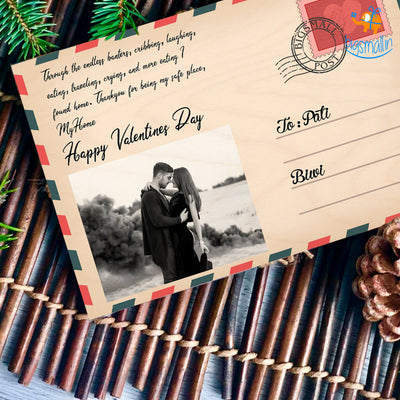 Through the endless banters, cribbing, laughing,
eating, traveling, crying, and more eating I
found home. Thankyou for being my safe place,
MyHome
Happy Valentines Day
To : Pati
Biwi
BIGSMALL
POST
Bigsmall.in